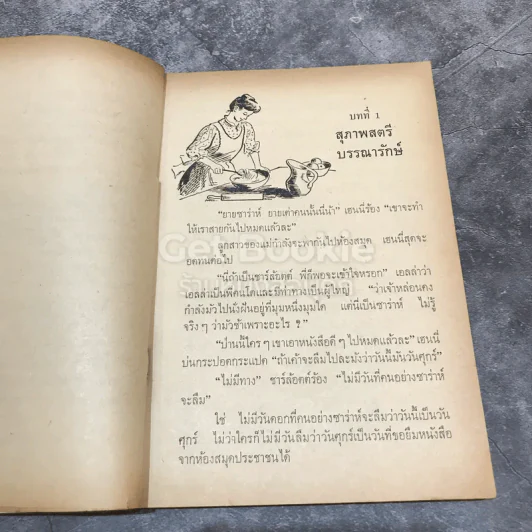 บทที่ 1
สุภาพสตรี
บรรณารักษ์
"ยายซาร่าห์ ยายเต่าคนนั้นนี่น้า" เฮนนี่ร้อง "เขาจะทำ
ให้เราสายกันไปหมดแล้วละ"
ลูกสาวของแม่กำลังจะพากันไปห้องสมุด เฮนนี่สุดจะ
อดทนต่อไป
"นี่ถ้าเป็นชาร์ล้อตต์ พี่ก็พอจะเข้าใจหรอก" เอลล่าว่า
เอลล่าเป็นพี่คนโตและมีท่าทางเป็นผู้ใหญ่ "ว่าเจ้าหล่อนคง
กำลังมัวไปนั่งฝันอยู่ที่มุมหนึ่งมุมใด แต่นี่เป็นซาร่าห์ ไม่รู้
จริง ๆ ว่ามัวช้าเพราะอะไร ?"
"ป่านนี้ใคร ๆ เขาเอาหนังสือดี ๆ ไปหมดแล้วละ" เฮนนี่
บ่นกระปอดกระแปด "ถ้าเค้าจะลืมไปละมังว่าวันนี้มันวันศุกร์"
"ไม่มีทาง" ชาร์ล้อตต์ร้อง "ไม่มีวันที่คนอย่างซาร่าห์
จะลืม"
ใช่ ไม่มีวันดอกที่คนอย่างซาร่าห์จะลืมว่าวันนี้เป็นวัน
ศุกร์ ไม่ว่าใครก็ไม่มีวันลืมว่าวันศุกร์เป็นวันที่ขอยืมหนังสือ
จากห้องสมุดประชาชนได้
Get Bookie